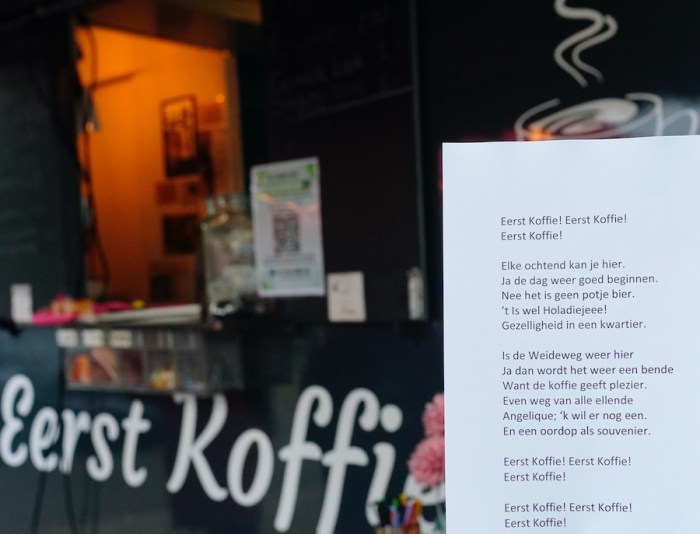 Eerst Koffi
Eerst Koffie! Eerst Koffie!
Eerst Koffie!
Elke ochtend kan je hier.
Ja de dag weer goed beginnen.
Nee het is geen potje bier.
't Is wel Holadiejeee!
Gezelligheid in een kwartier.
Is de Weideweg weer hier
Ja dan wordt het weer een bende
Want de koffie geeft plezier.
Even weg van alle ellende
Angelique; 'k wil er nog een.
En een oordop als souvenier.
Eerst Koffie! Eerst Koffie!
Eerst Koffie!
Eerst Koffie! Eerst Koffie!
Eerst Koffie!